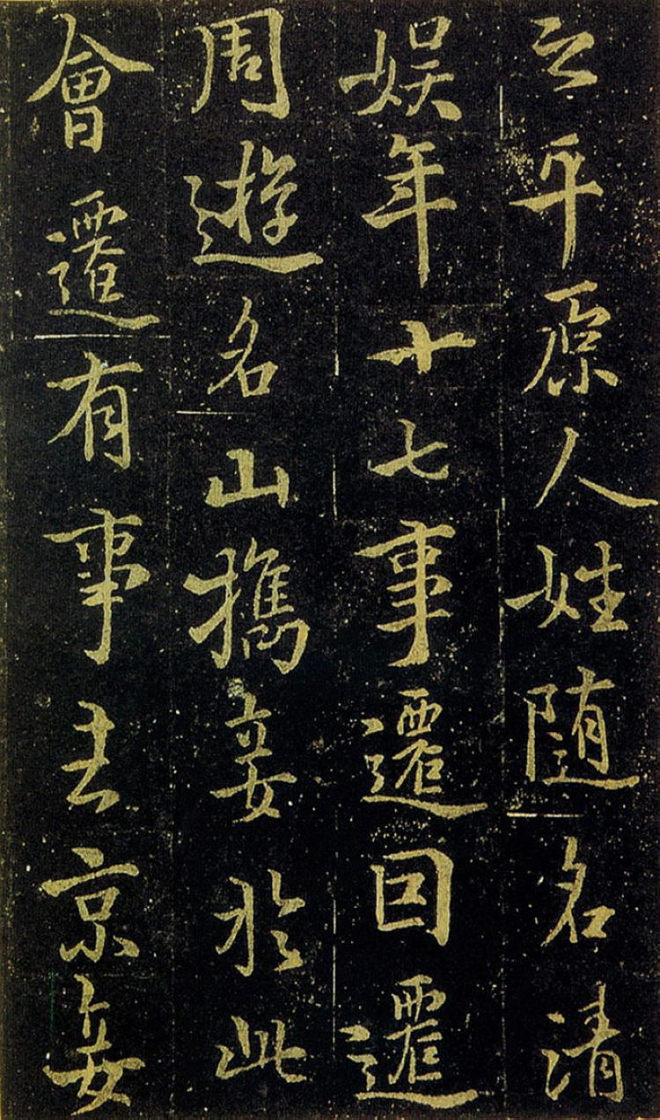 云平原人姓随名清
娱年十七事遷因遷
周遊名山携妾於此
會遷有事去京妾